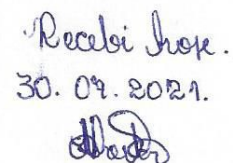 Recebi hoje.
30. 07. 2021.